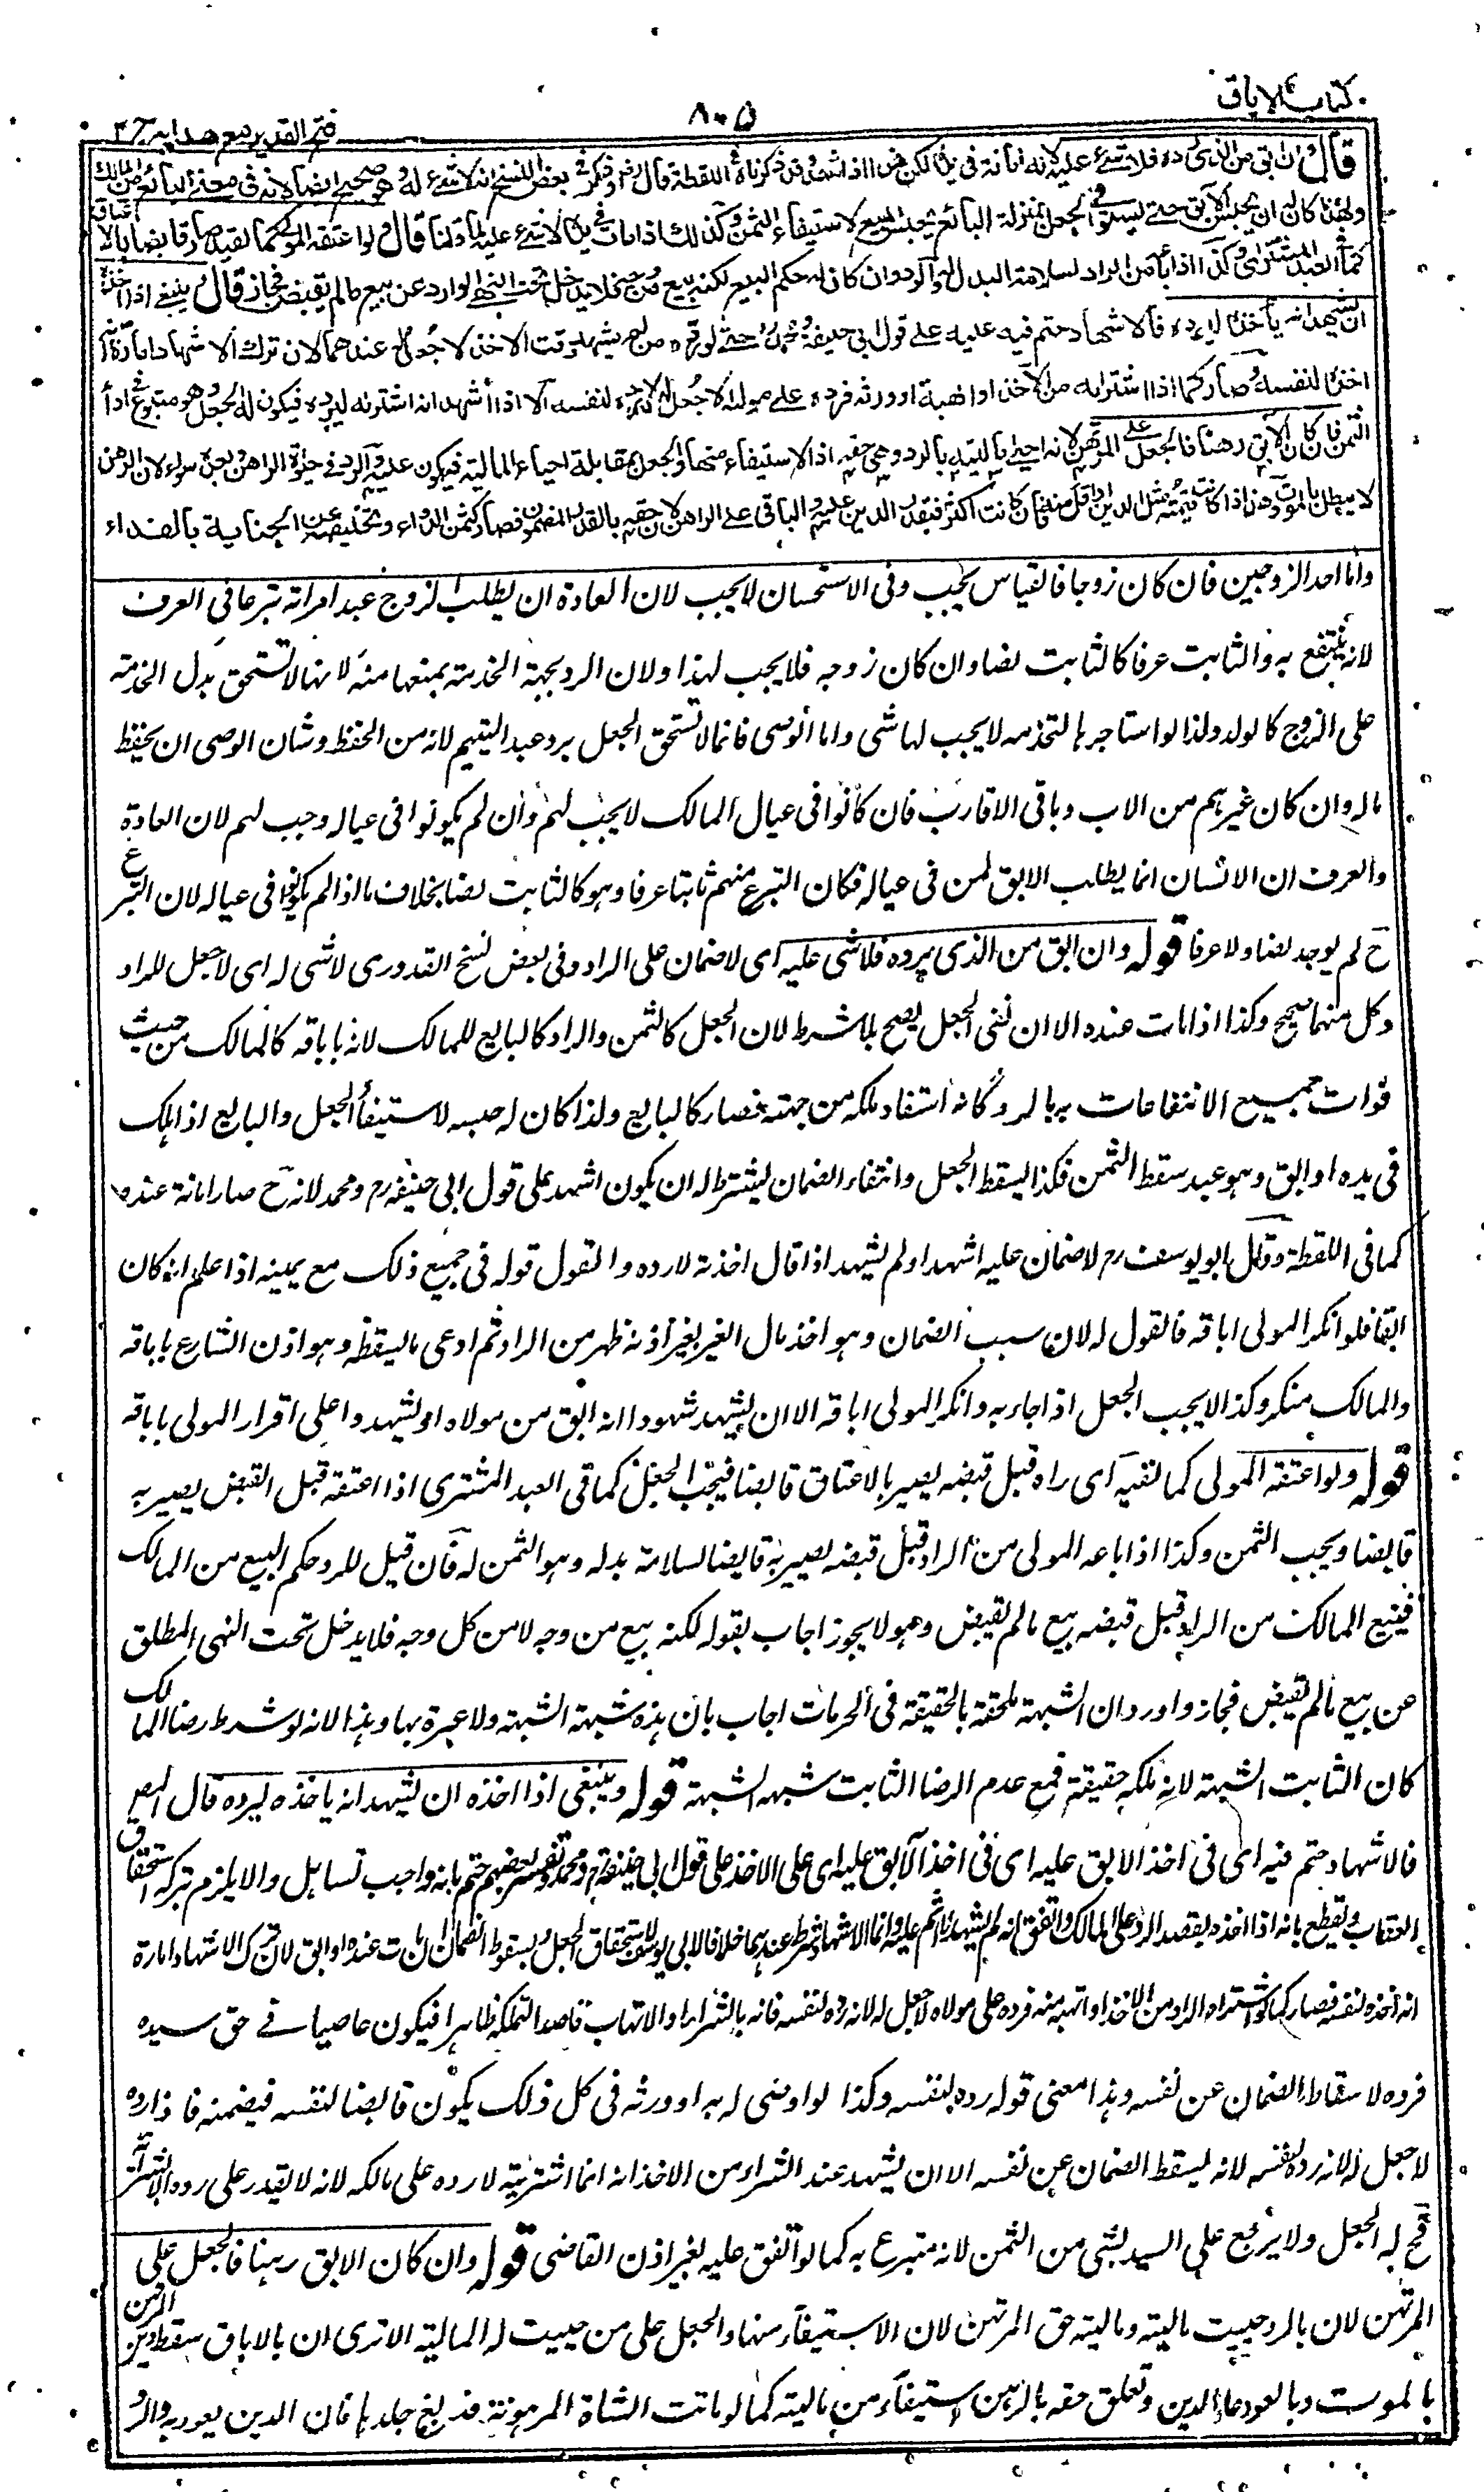 كتاب الاباق
٨٠٥
فتح القدير مع هدايه ج ٢
قال وان ابق من الذى رده فلا شىء عليه لانه امانة فى يده لكن هذا اذا اشهد وقد ذكرناه فى اللقطة قال رض وذكر فى بعض النسخ انه لا شىء له وهو صحيح ايضا لانه فى معنى البائع من المالك
ولهذا كان له ان يحبس الآبق حتى يستوفى الجعل بمنزلة البائع يحبس المبيع لاستيفاء الثمن وكذلك اذا مات فى يده لا شىء عليه لما قلنا قال ولو اعتقه المولى كما لقيه صار قابضا بالاعتاق
كما فى العبد المشترى وكذا اذا باعه من الراد لسلامة البدل له والرد وان كان له حكم البيع لكنه بيع من وجه فلا يدخل تحت النهى الوارد عن بيع ما لم يقبض فجاز قال وينبغى اذا اخذه
ان يشهد انه يأخذه ليرده فالاشهاد حتم فيه عليه على قول ابى حنيفة ومحمد حتى لو رده من لم يشهد وقت الاخذ لا جعل له عندهما لان ترك الاشهاد امارة انه
اخذه لنفسه وصار كما اذا اشتراه من الآخذ او اتهبه او ورثه فرده على مولاه لا جعل له لانه رده لنفسه الا اذا اشهد انه اشتراه ليرده فيكون له الجعل وهو متبرع فى اداء
الثمن فان كان الآبق رهنا فالجعل على المرتهن لانه احيى ماليته بالرد وهى حقه اذ الاستيفاء منها والجعل بمقابلة احياء المالية فيكون عليه والرد فى حيوة الراهن وبعده سواء لان الرهن
لا يبطل بالموت وهذا اذا كانت قيمته مثل الدين او اقل منه فان كانت اكثر فبقدر الدين عليه والباقى على الراهن لان حقه بالقدر المضمون فصار كثمن الدواء وتخليصه عن الجناية بالفداء
واما احد الزوجين فان كان زوجا فالقياس يجب وفى الاستحسان لا يجب لان العادة ان يطلب الزوج عبد امراته تبرعا فى العرف
لانه ينتفع به والثابت عرفا كالثابت نصا وان كان زوجه فلا يجب لهذا ولان الرد بجهة الخدمة يمنعها منه لانها لا تستحق بدل الخدمة
على الزوج كالولد ولذا لو استاجرها لتخدمه لا يجب لها شى واما الوصى فانما لا تستحق الجعل برد عبد اليتيم لانه من الحفظ وشان الوصى ان يحفظ
ماله وان كان غيرهم من الاب وباقى الاقارب فان كانوا فى عيال المالك لا يجب لهم وان لم يكونوا فى عياله وجب لهم لان العادة
والعرف ان الانسان انما يطلب الآبق لمن فى عياله فكان التبرع منهم ثابتا عرفا وهو كالثابت نصا بخلاف ما اذا لم يكونوا فى عياله لان التبرع
ح لم يوجد نصا ولا عرفا قوله وان ابق من الذى يرده فلا شى عليه اى لا ضمان على الراد وفى بعض نسخ القدورى لا شى له اى لا جعل للراد
وكل منهما صحيح وكذا اذا مات عنده الا ان نفى الجعل يصح بلا شرط لان الجعل كالثمن والراد كالبايع للمالك لانه باباقه كالهالك من حيث
فوات جميع الانتفاعات به بالرد كانه استفاد ملكه من جهته فصار كالبايع ولذا كان له حبسه لاستيفاء الجعل والبايع اذا هلك
فى يده او ابق وهو عبد سقط الثمن فكذا يسقط الجعل وانتفاء الضمان يشترط له ان يكون اشهد على قول ابى حنيفة رح ومحمد لانه ح صار امانة عنده
كما فى اللقطة وقال ابو يوسف رح لا ضمان عليه اشهد او لم يشهد اذا قال اخذته لارده والقول قوله فى جميع ذلك مع يمينه اذا علم انه كان
ابقا فلو انكر المولى اباقه فالقول له لان سبب الضمان وهو اخذ مال الغير بغير اذنه ظهر من الراد ثم ادعى ما يسقطه وهو اذن الشارع باباقه
والمالك منكر وكذا لا يجب الجعل اذا جاء به وانكر المولى اباقه الا ان يشهد شهود انه ابق من مولاه او يشهدوا على اقرار المولى باباقه
قوله ولو اعتقه المولى كما لقيه اى راه قبل قبضه يصير بالاعتاق قابضا فيجب الجعل كما فى العبد المشترى اذا اعتقه قبل القبض يصير به
قابضا ويجب الثمن وكذا اذا باعه المولى من الراد قبل قبضه يصير به قابضا لسلامة بدله وهو الثمن له فان قيل للرد حكم البيع من المالك
فبيع المالك من الراد قبل قبضه بيع ما لم يقبض وهو لا يجوز اجاب بقوله لكنه بيع من وجه لا من كل وجه فلا يدخل تحت النهى المطلق
عن بيع ما لم يقبض فجاز واورد ان الشبهة ملحقة بالحقيقة فى الحرمات اجاب بان هذه شبهة الشبهة ولا عبرة بها وهذا لانه لو شرط رضا المالك
كان الثابت الشبهة لانه ملكه حقيقة فمع عدم الرضا الثابت شبهة الشبهة قوله وينبغى اذا اخذه ان يشهد انه ياخذه ليرده قال المص
فالاشهاد حتم فيه اى فى اخذ الآبق عليه اى على الاخذ على قول ابى حنيفة رح ومحمد وتفسير بعضهم حتم بانه واجب تساهل والا يلزم بتركه استحقاق
العقاب ويقطع بانه اذا اخذه بقصد الرد على المالك واتفق انه لم يشهد لا اثم عليه وانما الاشهاد شرط عندهما خلافا لابى يوسف لاستحقاق الجعل وبسقوط الضمان ان مات عنده او ابق لان ترك الاشهاد امارة
انه اخذه لنفسه فصار كما لو اشتراه الراد من الاخذ او اتهبه منه فرده على مولاه لا جعل له لانه رده لنفسه فانه بالشراء والاتهاب قاصد التملكه ظاهرا فيكون عاصيا فى حق سيده
فرده لاسقاط الضمان عن نفسه وهذا معنى قوله رده لنفسه وكذا لو اوصى له به او ورثه فى كل ذلك يكون قابضا لنفسه فيضمنه فاذا رده
لا جعل له لانه رده لنفسه لانه ليسقط الضمان عن نفسه الا ان يشهد عند الشراء من الاخذ انه انما اشتريته لارده على مالكه لانه لا يقدر على رده الا بشرائه
فح له الجعل ولا يرجع على السيد بشى من الثمن لانه متبرع به كما لو اتفق عليه بغير اذن القاضى قوله وان كان الآبق رهنا فالجعل على
المرتهن لان بالرد حييت ماليته وماليته حق المرتهن لان الاستيفاء منها والجعل على من حييت له المالية الا ترى ان بالاباق سقط دين المرتهن
بالموت وبالعود عاد الدين وتعلق حقه بالرهن استيفاء من ماليته كما لو ماتت الشاة المرهونة فدبغ جلدها فان الدين يعود به والرد